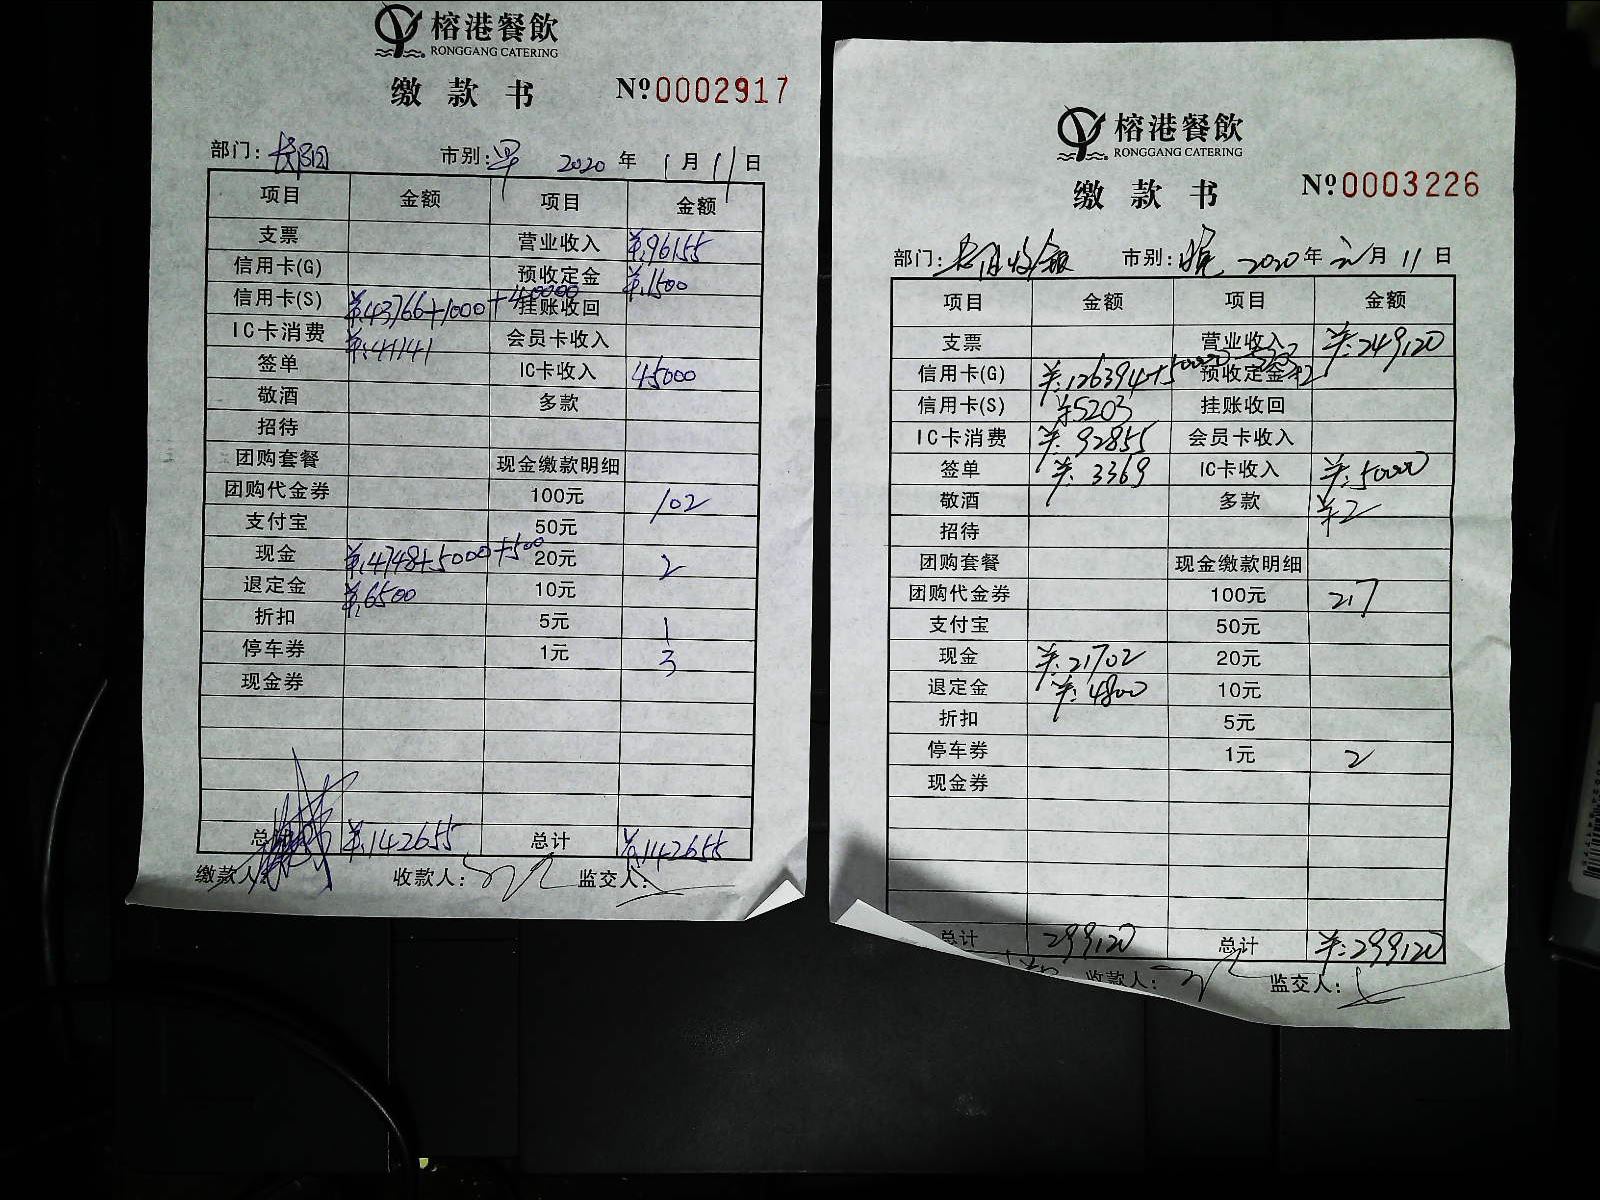 榕港餐飲
RONGGANG CATERING
缴款书 Nº0002917
部门: 市别:早 2020年1月11日
项目 金额 项目 金额
支票 营业收入 ¥:96155
信用卡(G) 预收定金 ¥:1500
信用卡(S) ¥:43766+1000+40000 挂账收回
IC卡消费 ¥:41141 会员卡收入
签单 IC卡收入 45000
敬酒 多款
招待
团购套餐 现金缴款明细
团购代金券 100元 102
支付宝 50元
现金 ¥:4748+5000+500 20元 2
退定金 ¥:6500 10元
折扣 5元 1
停车券 1元 3
现金券
总计 ¥:142655 总计 ¥:142655
缴款人: 收款人: 监交人:
榕港餐飲
RONGGANG CATERING
缴款书 Nº0003226
部门: 市别:晚 2020年元月11日
项目 金额 项目 金额
支票 营业收入 ¥:249120
信用卡(G) ¥:126394+50000 预收定金
信用卡(S) ¥5203 挂账收回
IC卡消费 ¥:92855 会员卡收入
签单 ¥:3369 IC卡收入 ¥:50000
敬酒 多款 ¥2
招待
团购套餐 现金缴款明细
团购代金券 100元 217
支付宝 50元
现金 ¥:21702 20元
退定金 ¥:4800 10元
折扣 5元
停车券 1元 2
现金券
总计 299120 总计 ¥:299120
收款人: 监交人: